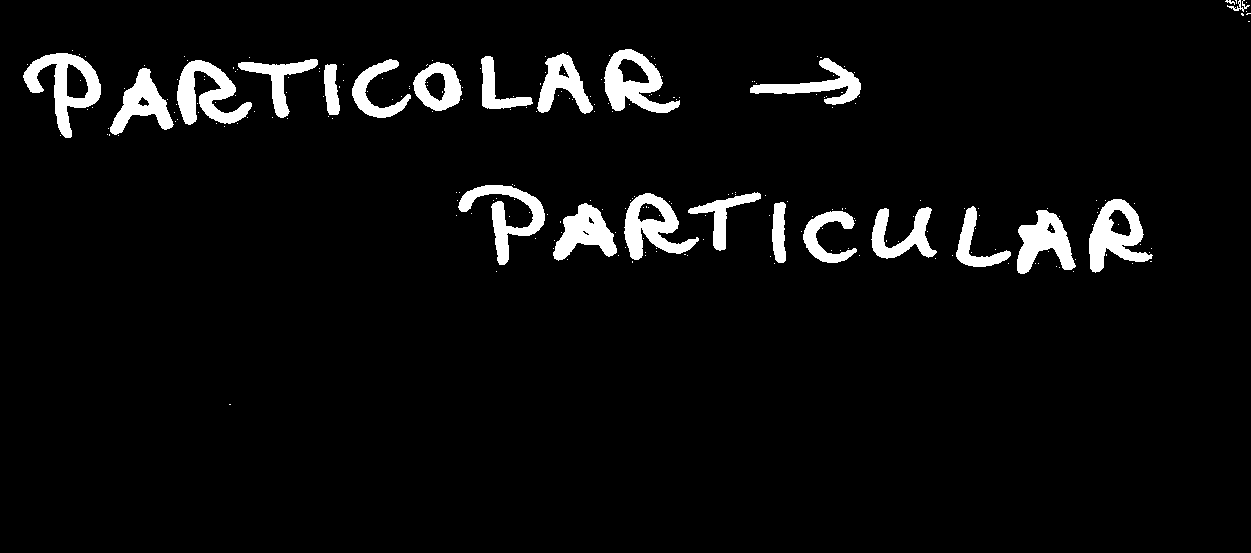 PARTICOLAR →
PARTICULAR